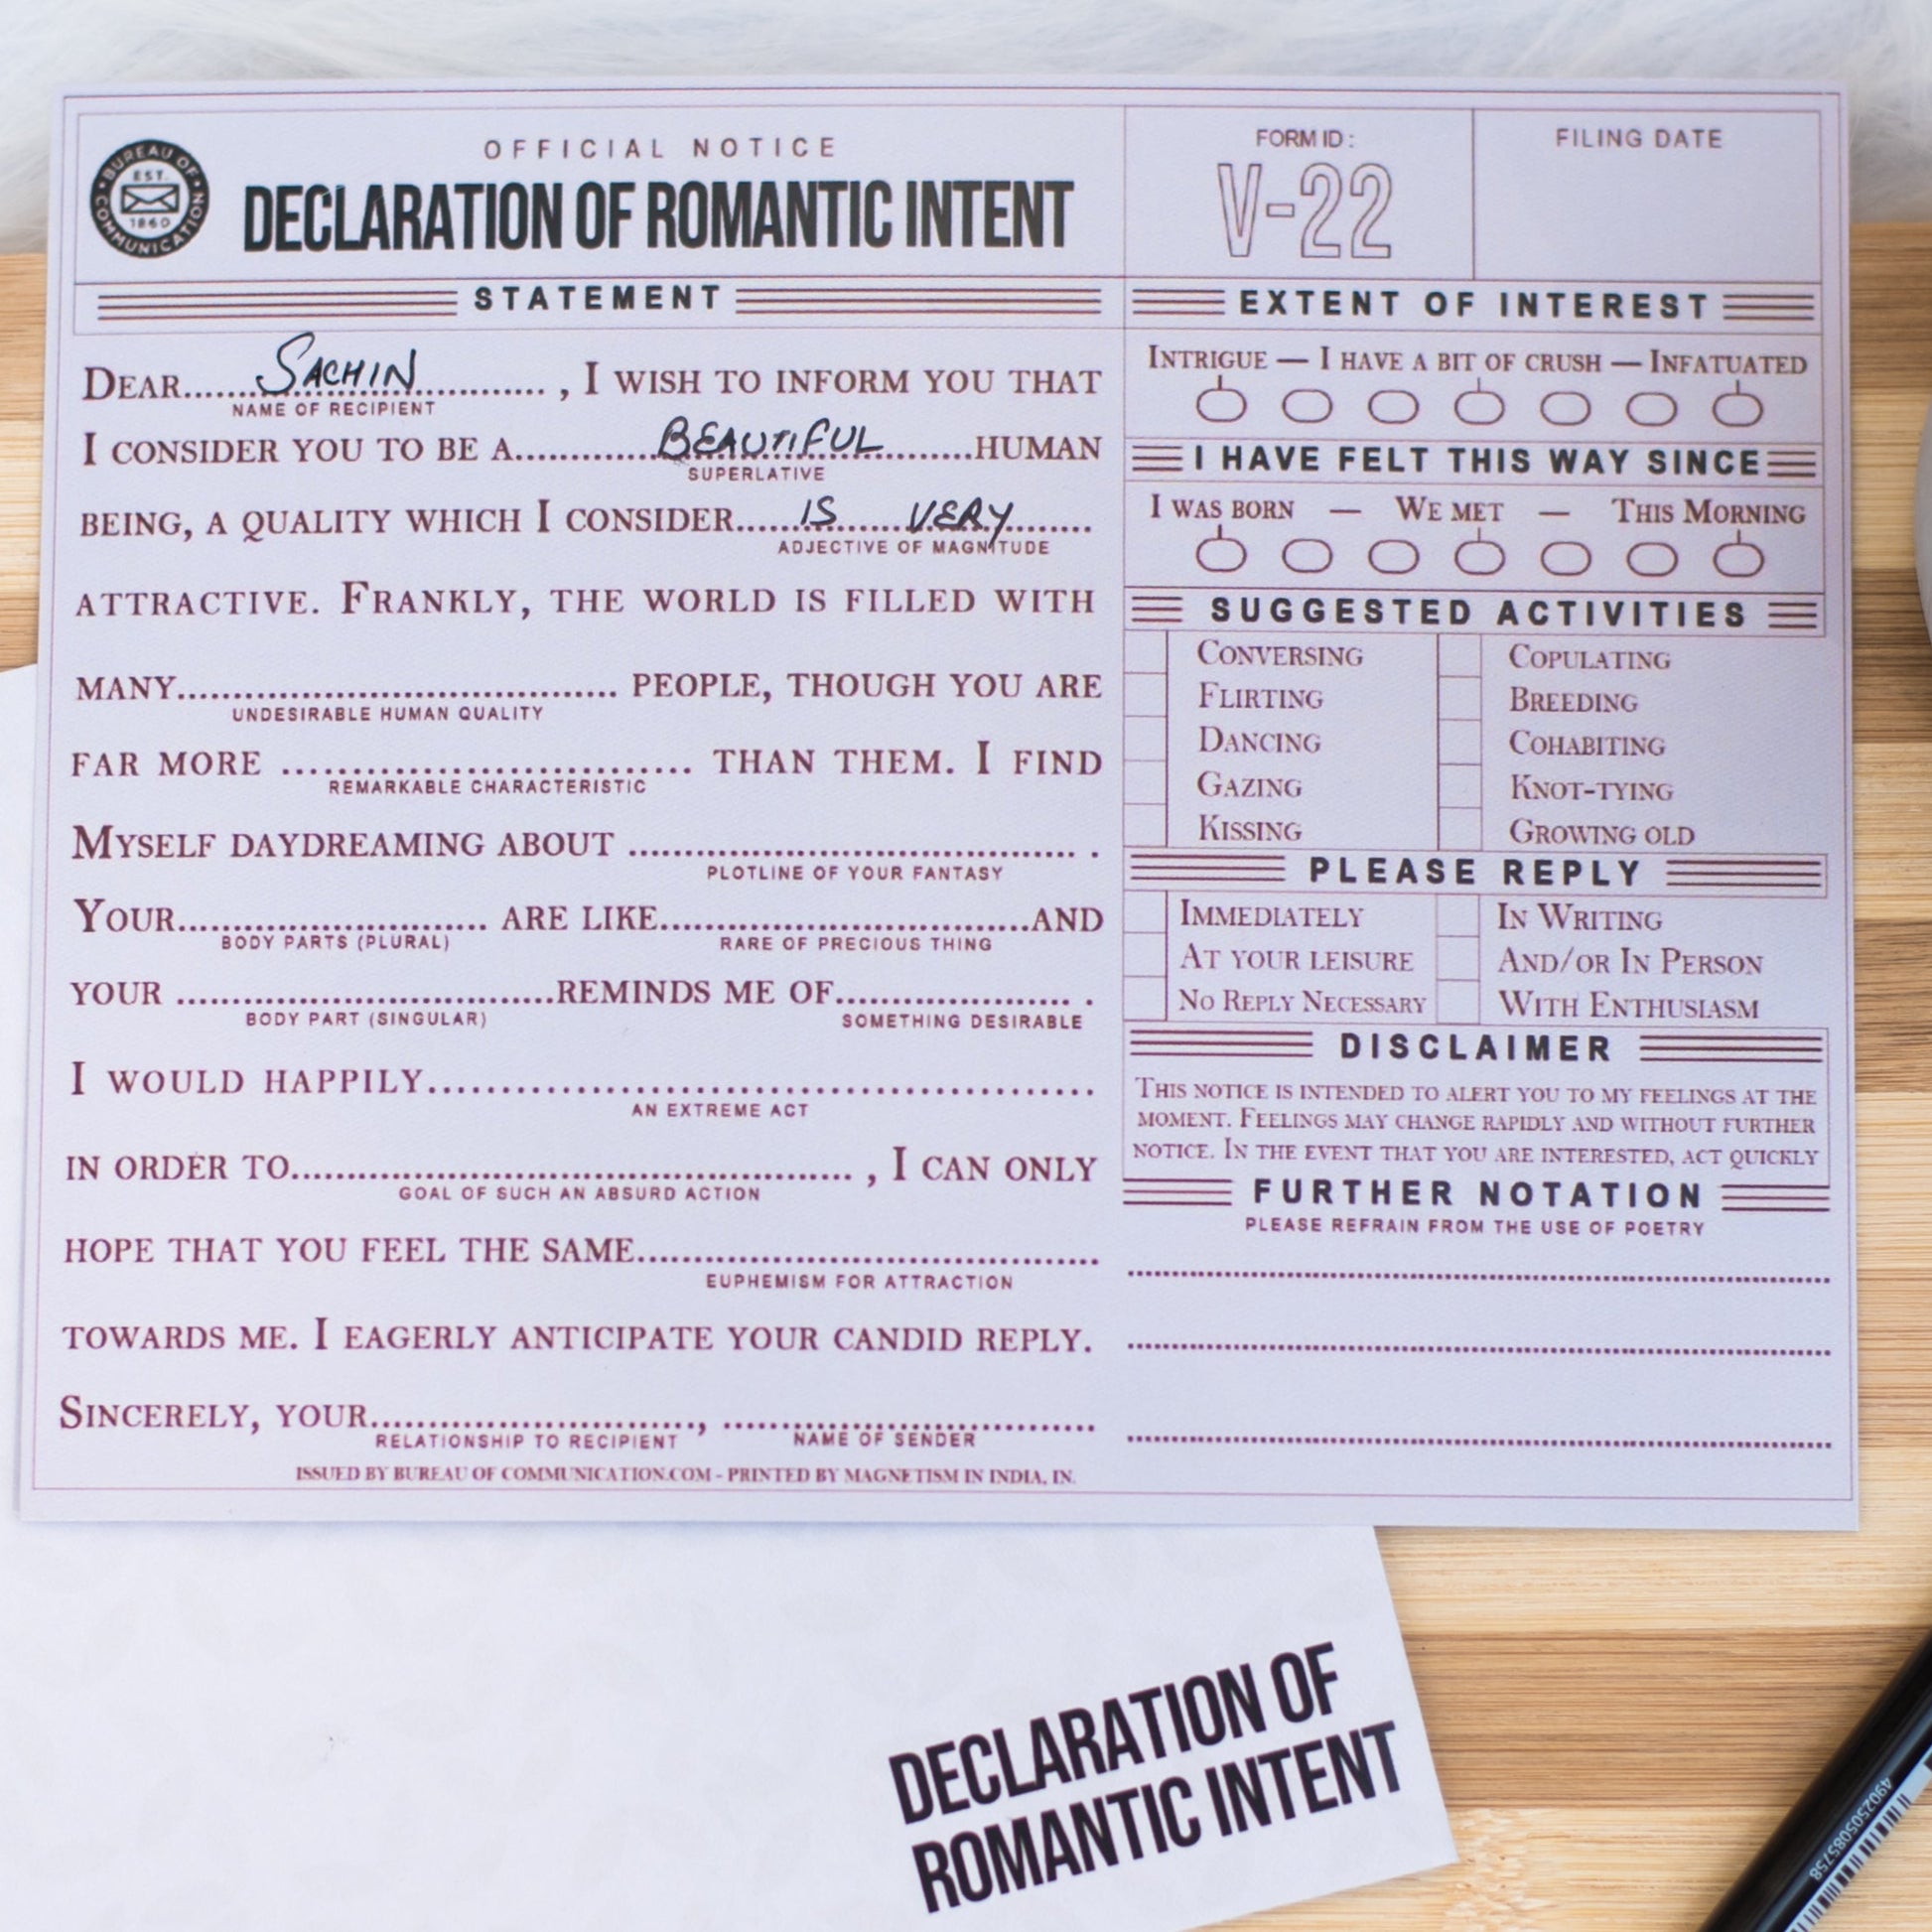 BUREAU OF COMMUNICATION
EST.
1860
OFFICIAL NOTICE
DECLARATION OF ROMANTIC INTENT
FORM ID :
V-22
FILING DATE
STATEMENT
DEAR...... SACHIN ............ , I WISH TO INFORM YOU THAT
NAME OF RECIPIENT
I CONSIDER YOU TO BE A............ BEAUTIFUL .........HUMAN
SUPERLATIVE
BEING, A QUALITY WHICH I CONSIDER..... IS ...... VERY .......
ADJECTIVE OF MAGNITUDE
ATTRACTIVE. FRANKLY, THE WORLD IS FILLED WITH
MANY........................................ PEOPLE, THOUGH YOU ARE
UNDESIRABLE HUMAN QUALITY
FAR MORE .............................. THAN THEM. I FIND
REMARKABLE CHARACTERISTIC
MYSELF DAYDREAMING ABOUT ........................................ .
PLOTLINE OF YOUR FANTASY
YOUR............................ ARE LIKE..................................AND
BODY PARTS (PLURAL) RARE OF PRECIOUS THING
YOUR ..................................REMINDS ME OF..................... .
BODY PART (SINGULAR) SOMETHING DESIRABLE
I WOULD HAPPILY..................................................
AN EXTREME ACT
IN ORDER TO.................................................. , I CAN ONLY
GOAL OF SUCH AN ABSURD ACTION
HOPE THAT YOU FEEL THE SAME..........................................
EUPHEMISM FOR ATTRACTION
TOWARDS ME. I EAGERLY ANTICIPATE YOUR CANDID REPLY.
SINCERELY, YOUR............................., .................................
RELATIONSHIP TO RECIPIENT NAME OF SENDER
ISSUED BY BUREAU OF COMMUNICATION.COM - PRINTED BY MAGNETISM IN INDIA, IN.
EXTENT OF INTEREST
INTRIGUE — I HAVE A BIT OF CRUSH — INFATUATED
I HAVE FELT THIS WAY SINCE
I WAS BORN — WE MET — THIS MORNING
SUGGESTED ACTIVITIES
CONVERSING COPULATING
FLIRTING BREEDING
DANCING COHABITING
GAZING KNOT-TYING
KISSING GROWING OLD
PLEASE REPLY
IMMEDIATELY IN WRITING
AT YOUR LEISURE AND/OR IN PERSON
NO REPLY NECESSARY WITH ENTHUSIASM
DISCLAIMER
THIS NOTICE IS INTENDED TO ALERT YOU TO MY FEELINGS AT THE
MOMENT. FEELINGS MAY CHANGE RAPIDLY AND WITHOUT FURTHER
NOTICE. IN THE EVENT THAT YOU ARE INTERESTED, ACT QUICKLY
FURTHER NOTATION
PLEASE REFRAIN FROM THE USE OF POETRY
DECLARATION OF
ROMANTIC INTENT
4902505085758